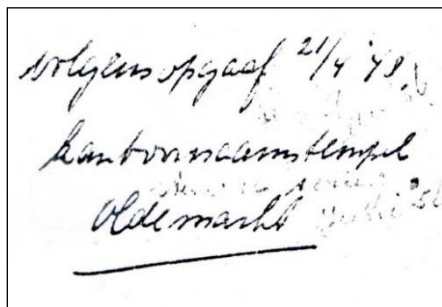 volgens opgaaf 21/4 '48.
kantoornaamstempel
Oldemarkt